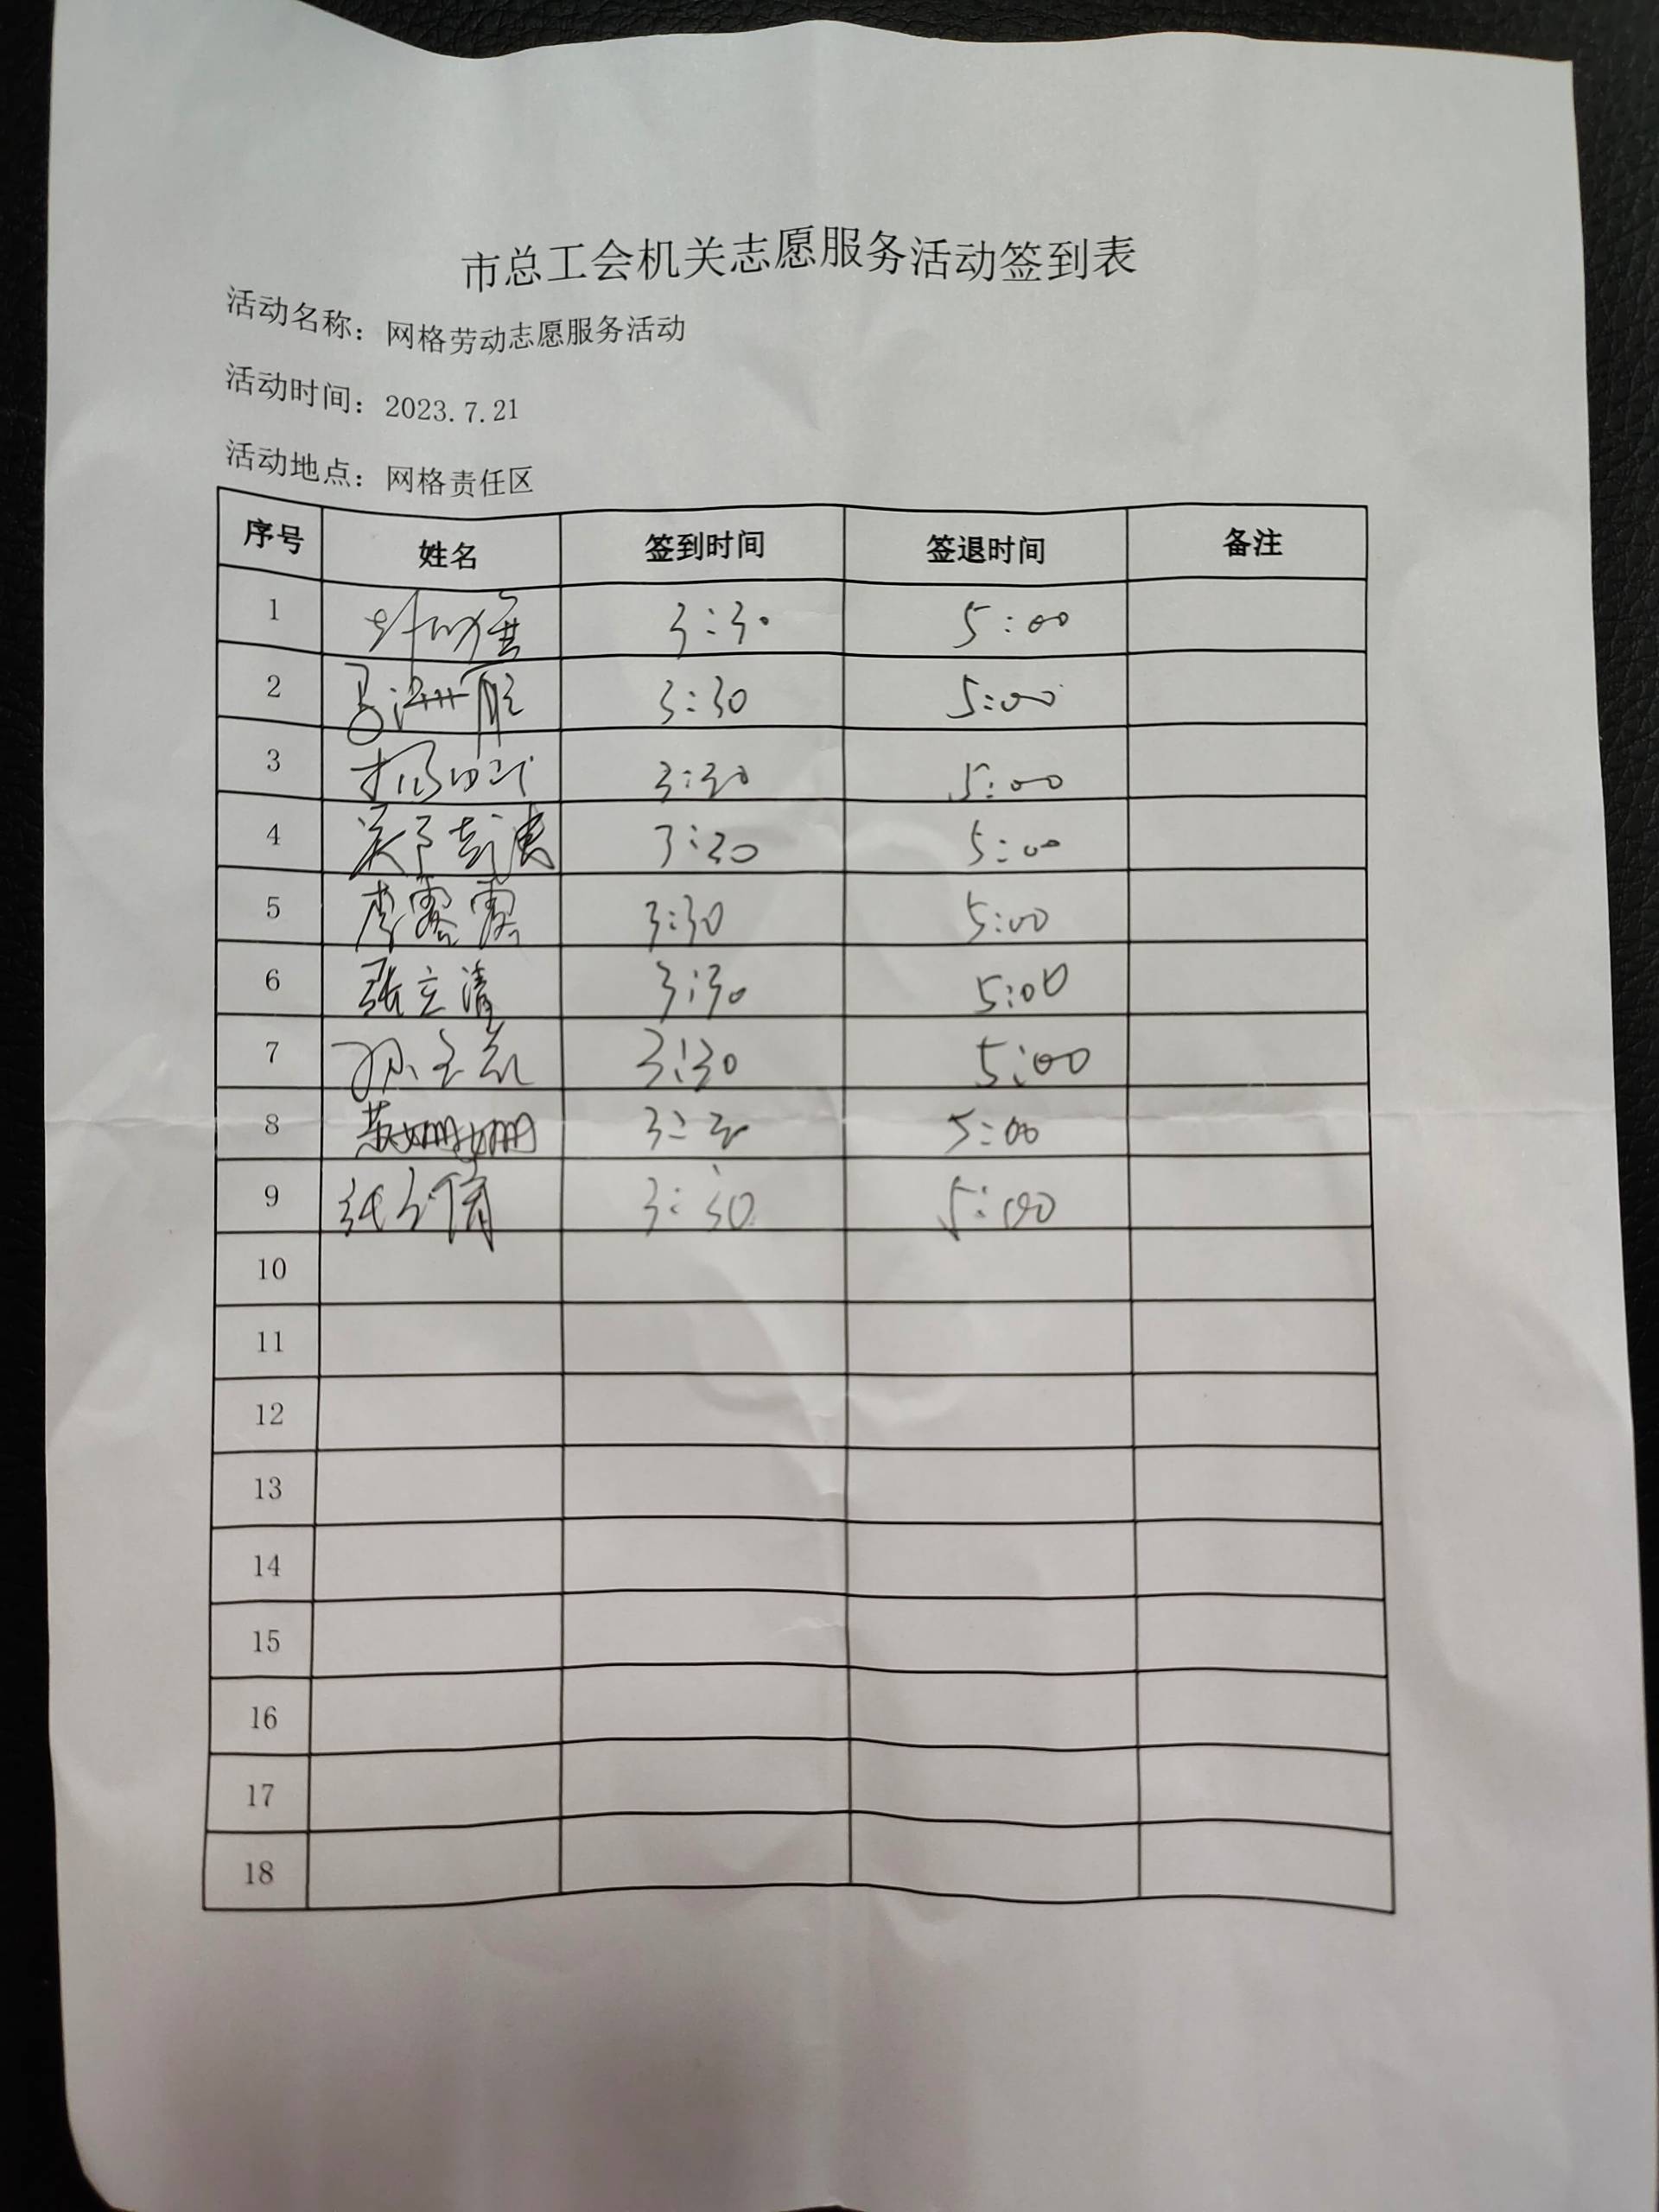 市总工会机关志愿服务活动签到表
活动名称：网格劳动志愿服务活动
活动时间：2023.7.21
活动地点：网格责任区
序号 姓名 签到时间 签退时间 备注
1 3:30 5:00
2 3:30 5:00
3 3:30 5:00
4 3:30 5:00
5 李露露 3:30 5:00
6 张立清 3:30 5:00
7 3:30 5:00
8 黄姗姗 3:30 5:00
9 3:30 5:00
10
11
12
13
14
15
16
17
18